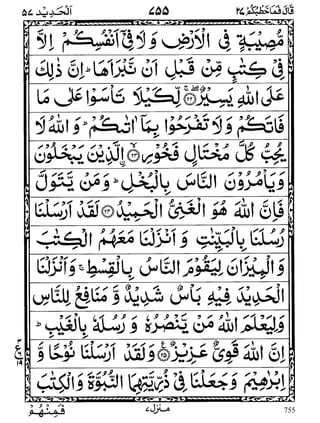 قَالَ فَمَا خَطْبُكُمْ ٢٧ ٧٥٥ اَلْحَدِيْد ٥٧
مُّصِيْبَةٍ فِي الْاَرْضِ وَلَا فِيْۤ اَنْفُسِكُمْ اِلَّا
فِيْ كِتٰبٍ مِّنْ قَبْلِ اَنْ نَّبْرَاَهَا ؕ اِنَّ ذٰلِكَ
عَلَى اللّٰهِ يَسِيْرٌ ﴿٢٢﴾ لِّكَيْلَا تَاْسَوْا عَلٰى مَا
فَاتَكُمْ وَلَا تَفْرَحُوْا بِمَاۤ اٰتٰىكُمْ ؕ وَاللّٰهُ لَا
يُحِبُّ كُلَّ مُخْتَالٍ فَخُوْرِ ﴿٢٣﴾ الَّذِيْنَ يَبْخَلُوْنَ
وَيَاْمُرُوْنَ النَّاسَ بِالْبُخْلِ ؕ وَمَنْ يَّتَوَلَّ
فَاِنَّ اللّٰهَ هُوَ الْغَنِيُّ الْحَمِيْدُ ﴿٢٤﴾ لَقَدْ اَرْسَلْنَا
رُسُلَنَا بِالْبَيِّنٰتِ وَ اَنْزَلْنَا مَعَهُمُ الْكِتٰبَ
وَ الْمِيْزَانَ لِيَقُوْمَ النَّاسُ بِالْقِسْطِ ۚ وَاَنْزَلْنَا
الْحَدِيْدَ فِيْهِ بَاْسٌ شَدِيْدٌ وَّ مَنَافِعُ لِلنَّاسِ
وَلِيَعْلَمَ اللّٰهُ مَنْ يَّنْصُرُهٗ وَ رُسُلَهٗ بِالْغَيْبِ ؕ
اِنَّ اللّٰهَ قَوِيٌّ عَزِيْزٌ ﴿٢٥﴾ وَلَقَدْ اَرْسَلْنَا نُوْحًا وَّ
اِبْرٰهِيْمَ وَجَعَلْنَا فِيْ ذُرِّيَّتِهِمَا النُّبُوَّةَ وَ الْكِتٰبَ
755 منزل ٧ فَمِنْهُمْ